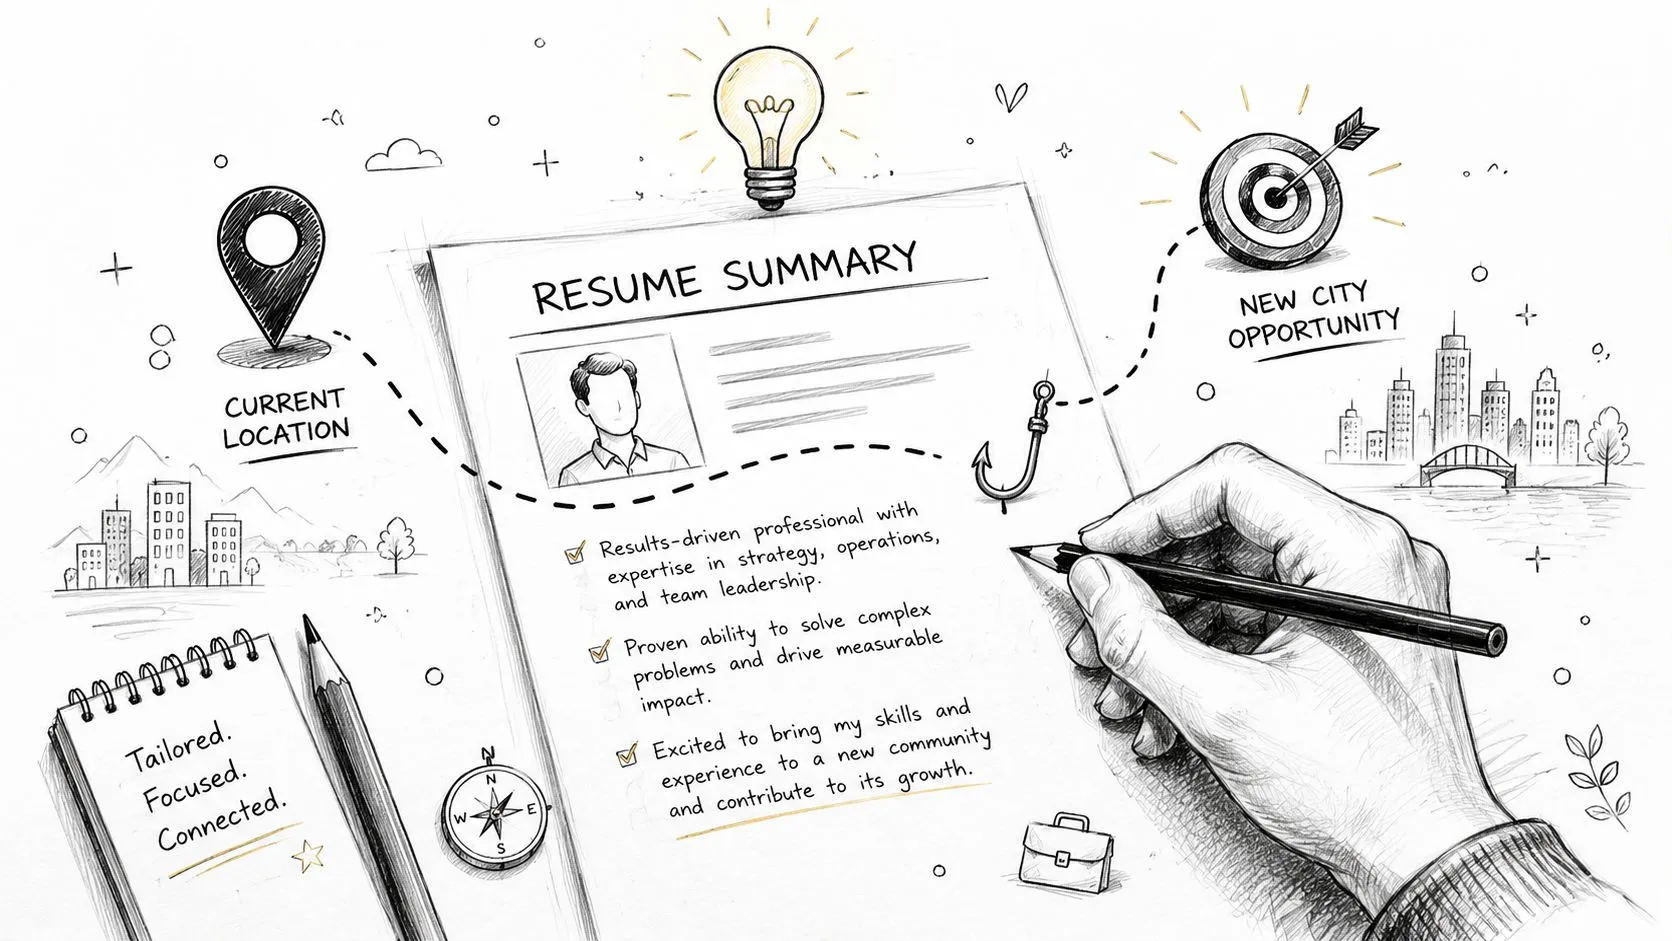 RESUME SUMMARY
CURRENT
LOCATION
NEW CITY
OPPORTUNITY
Results-driven professional with
expertise in strategy, operations,
and team leadership.
Proven ability to solve complex
problems and drive measurable
impact.
Excited to bring my skills and
experience to a new community
and contribute to its growth.
Tailored.
Focused.
Connected.
N
N
W E
S